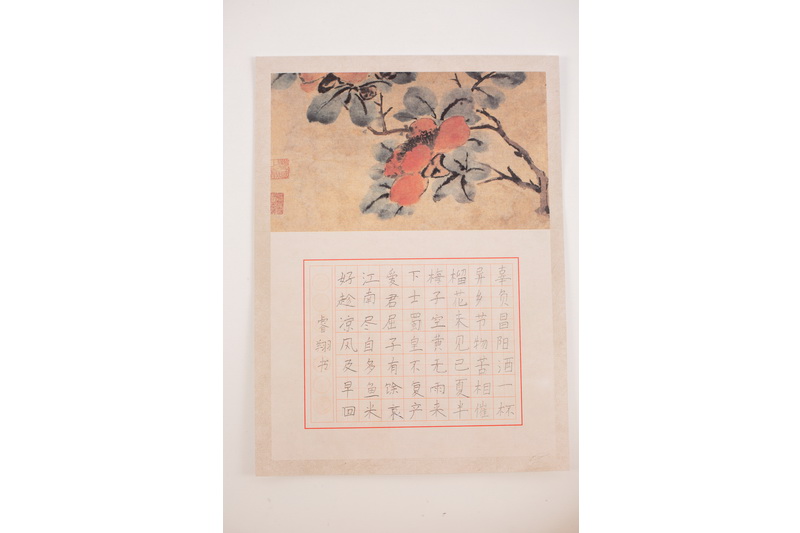 辜负昌阳酒一杯
异乡节物苦相催
榴花未见已夏半
梅子空黄无雨来
下士蜀皇不复产
爱君屈子有馀哀
江南尽自多鱼米
好趁凉风及早回
睿翔书